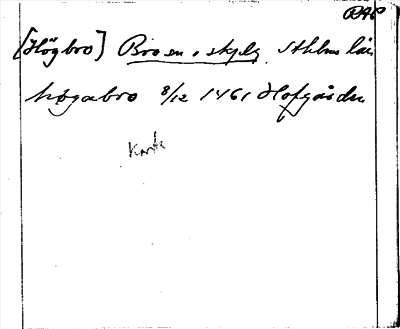 RAP
[Högbro] Bro sn, skplg. Sthlms län
høgabro 8/12 1461 Hofgården
Karta